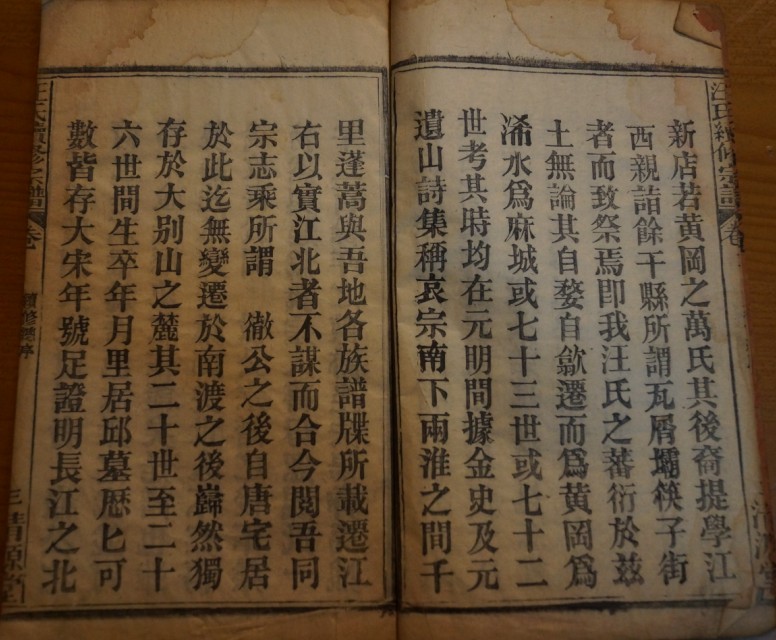 新店若黃岡之萬氏其後裔提學江
西親詣餘干縣所謂瓦屑壩筷子街
者而致祭焉即我汪氏之蕃衍於茲
土無論其自婺自歙遷而爲黃岡爲
浠水爲麻城或七十三世或七十二
世考其時均在元明間據金史及元
遺山詩集稱哀宗南下兩淮之間千
里蓬蒿與吾地各族譜牒所載遷江
右以實江北者不謀而合今閱吾同
宗志乘所謂 徹公之後自唐宅居
於此迄無變遷於南渡之後巋然獨
存於大別山之麓其二十世至二十
六世間生卒年月里居邱墓歷匕可
數皆存大宋年號足證明長江之北
汪氏續修宗譜
卷
續修譜序
三
清源堂